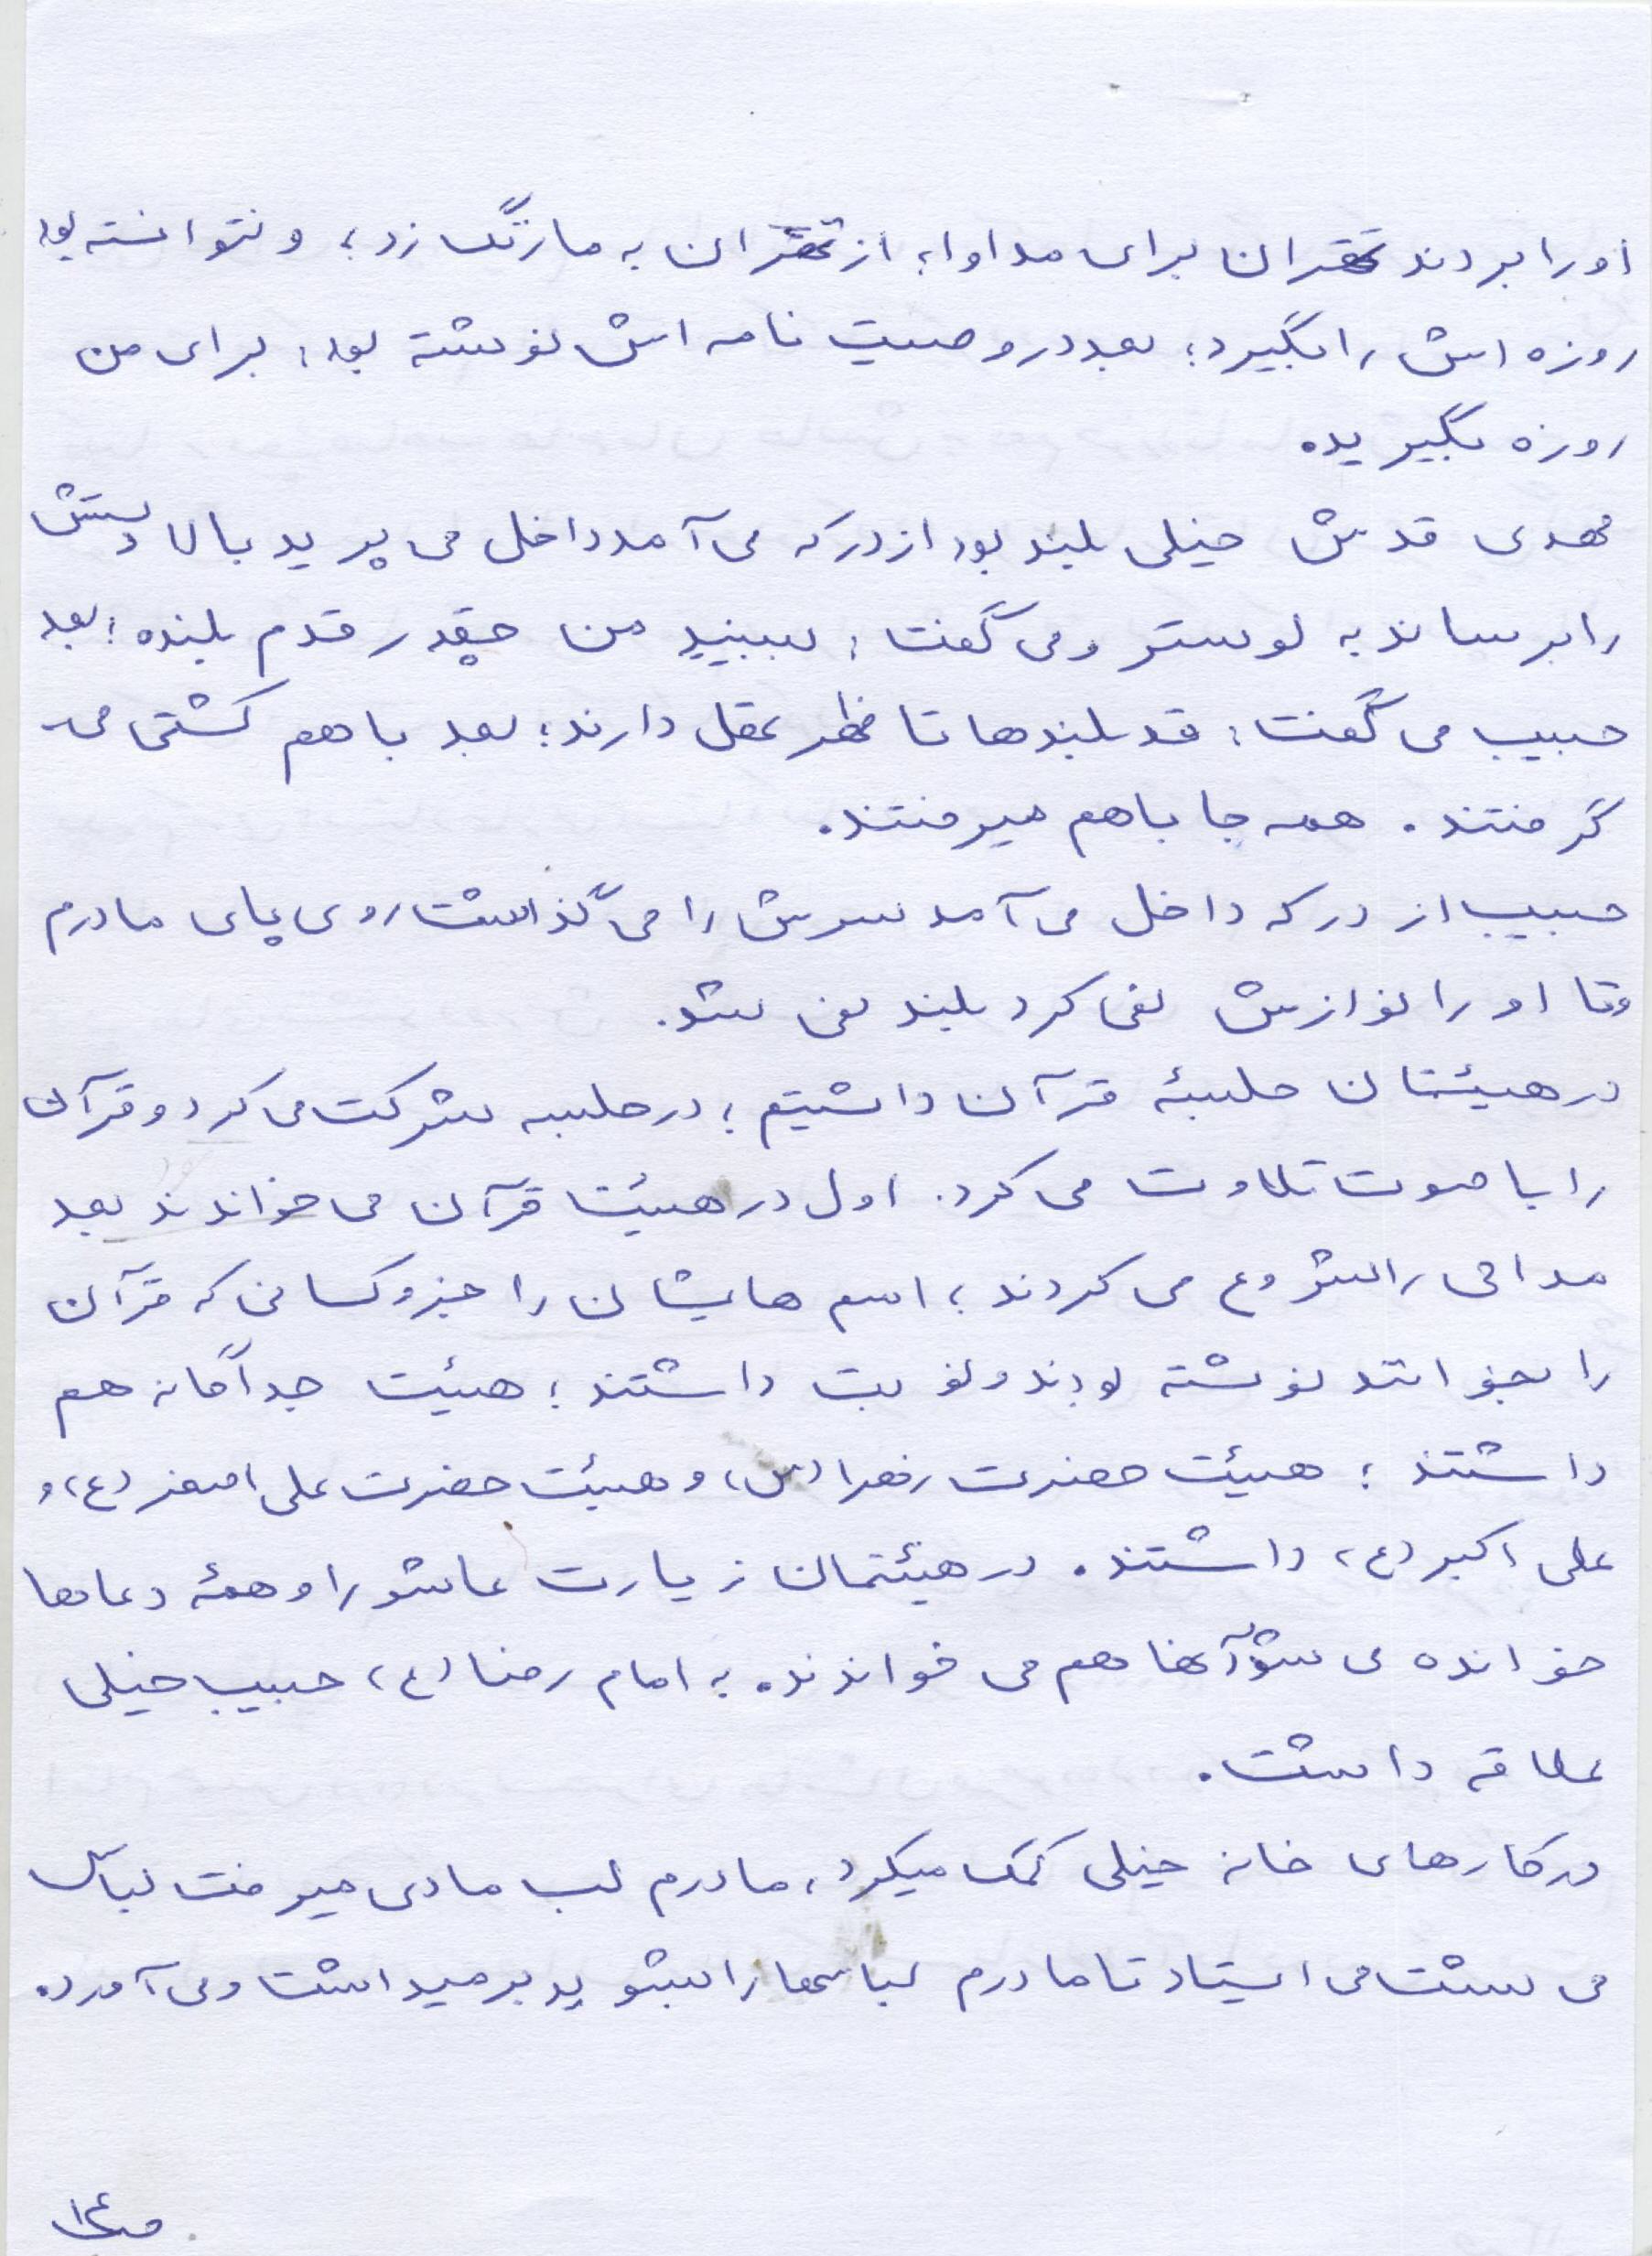 او را بردند تهران برای مداوا؛ از تهران به ما زنگ زد؛ و نتوانسته بود
روزه اش را بگیرد؛ بعد در وصیت نامه اش نوشته بود: برای من
روزه بگیرید.
مهدی قدش خیلی بلند بود از در که می آمد داخل می پرید بالا دستش
را برساند به لوستر و می گفت: ببینید من چقدر قدم بلنده؛ بعد
حبیب می گفت: قد بلندها تا ظهر عقل دارند؛ بعد با هم کشتی می-
گرفتند. همه جا با هم میرفتند.
حبیب از در که داخل می آمد سرش را می گذاشت روی پای مادرم
و تا او را نوازش نمی کرد بلند نمی شد.
در هیئتمان جلسۀ قرآن داشتیم؛ در جلسه شرکت می کرد و قرآن
را با صوت تلاوت می کرد. اول در هیئت قرآن می خواندند بعد
مداحی را شروع می کردند؛ اسم هایشان را جزو کسانی که قرآن
را بخوانند نوشته بودند و نوبت داشتند؛ هیئت جداگانه هم
داشتند؛ هیئت حضرت زهرا (س) و هیئت حضرت علی اصغر (ع) و
علی اکبر (ع) داشتند. در هیئتمان زیارت عاشورا و همۀ دعاها
خوانده می شود آنها هم می خواندند. به امام رضا (ع) حبیب خیلی
علاقه داشت.
در کارهای خانه خیلی کمک میکرد، مادرم لب مادی میرفت لباس
می شست می ایستاد تا مادرم لباسها را بشوید برمیداشت و می آورد.
ص۱۴